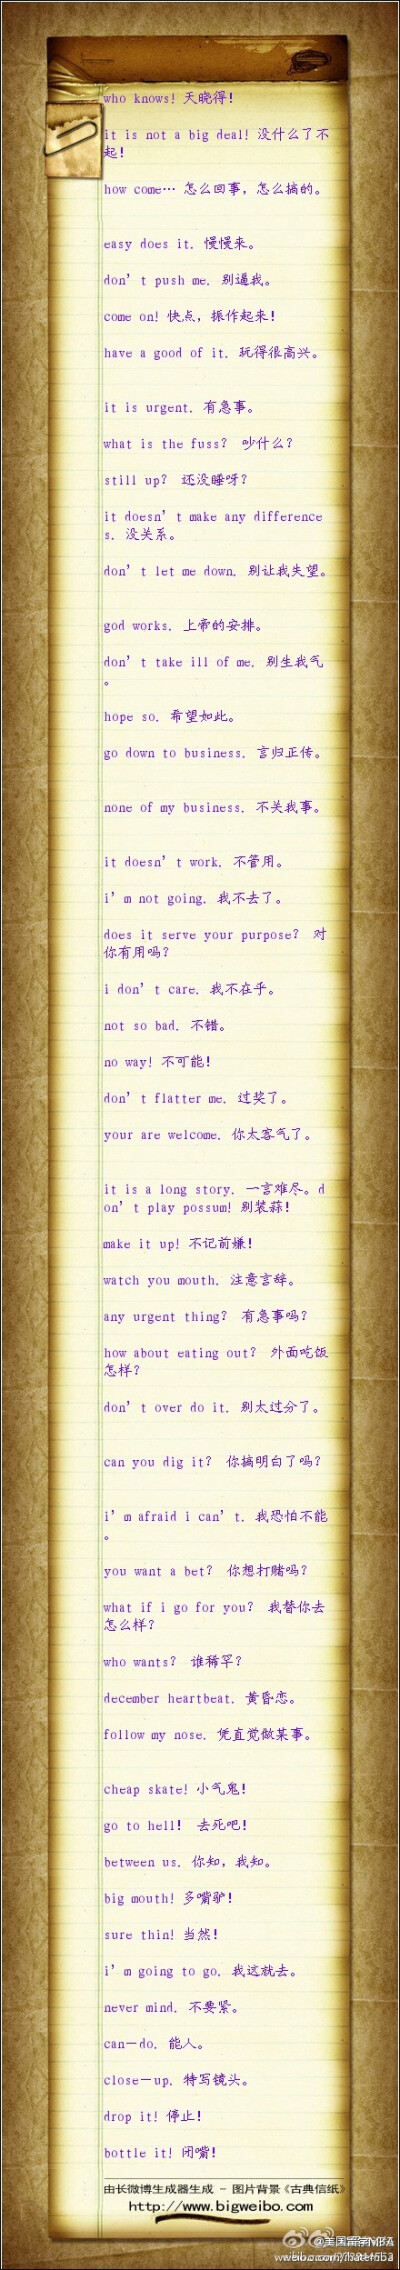 who knows! 天晓得!
it is not a big deal! 没什么了不
起!
how come… 怎么回事, 怎么搞的。
easy does it. 慢慢来。
don’t push me. 别逼我。
come on! 快点, 振作起来!
have a good of it. 玩得很高兴。
it is urgent. 有急事。
what is the fuss? 吵什么?
still up? 还没睡呀?
it doesn’t make any difference
s. 没关系。
don’t let me down. 别让我失望。
god works. 上帝的安排。
don’t take ill of me. 别生我气
。
hope so. 希望如此。
go down to business. 言归正传。
none of my business. 不关我事。
it doesn’t work. 不管用。
i’m not going. 我不去了。
does it serve your purpose? 对
你有用吗?
i don’t care. 我不在乎。
not so bad. 不错。
no way! 不可能!
don’t flatter me. 过奖了。
your are welcome. 你太客气了。
it is a long story. 一言难尽。d
on’t play possum! 别装蒜!
make it up! 不记前嫌!
watch you mouth. 注意言辞。
any urgent thing? 有急事吗?
how about eating out? 外面吃饭
怎样?
don’t over do it. 别太过分了。
can you dig it? 你搞明白了吗?
i’m afraid i can’t. 我恐怕不能
。
you want a bet? 你想打赌吗?
what if i go for you? 我替你去
怎么样?
who wants? 谁稀罕?
december heartbeat. 黄昏恋。
follow my nose. 凭直觉做某事。
cheap skate! 小气鬼!
go to hell! 去死吧!
between us. 你知, 我知。
big mouth! 多嘴驴!
sure thin! 当然!
i’m going to go. 我这就去。
never mind. 不要紧。
can－do. 能人。
close－up. 特写镜头。
drop it! 停止!
bottle it! 闭嘴!
由长微博生成器生成 - 图片背景《古典信纸》
http://www.bigweibo.com